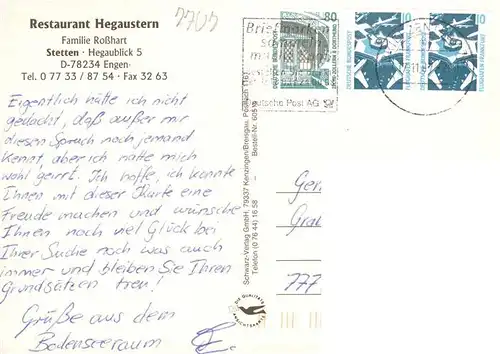 Restaurant Hegaustern
Familie Roßhart
Stetten · Hegaublick 5
D-78234 Engen
Tel. 0 77 33 / 87 54 · Fax 32 63
Eigentlich hätte ich nicht
gedacht, daß außer mir
diesen Spruch noch jemand
kennt, aber ich hätte mich
wohl geirrt. Ich hoffe, ich konnte
Ihnen mit dieser Karte eine
Freude machen und wünsche
Ihnen noch viel Glück bei
Ihrer Suche nach was auch
immer und bleiben Sie Ihren
Grundsätzen treu!
Grüße aus dem
Bodenseeraum
Schwarz-Verlag GmbH, 79337 Kenzingen/Breisgau, Postfach 1161
Telefon (0 76 44) 16 58
Bestell-Nr.
Briefmarken
Deutsche Post AG
80
DEUTSCHE BUNDESPOST
10
DEUTSCHE BUNDESPOST
FLUGHAFEN FRANKFURT
10
DEUTSCHE BUNDESPOST
FLUGHAFEN FRANKFURT
777
DIE QUALITÄTS
ANSICHTSKARTE